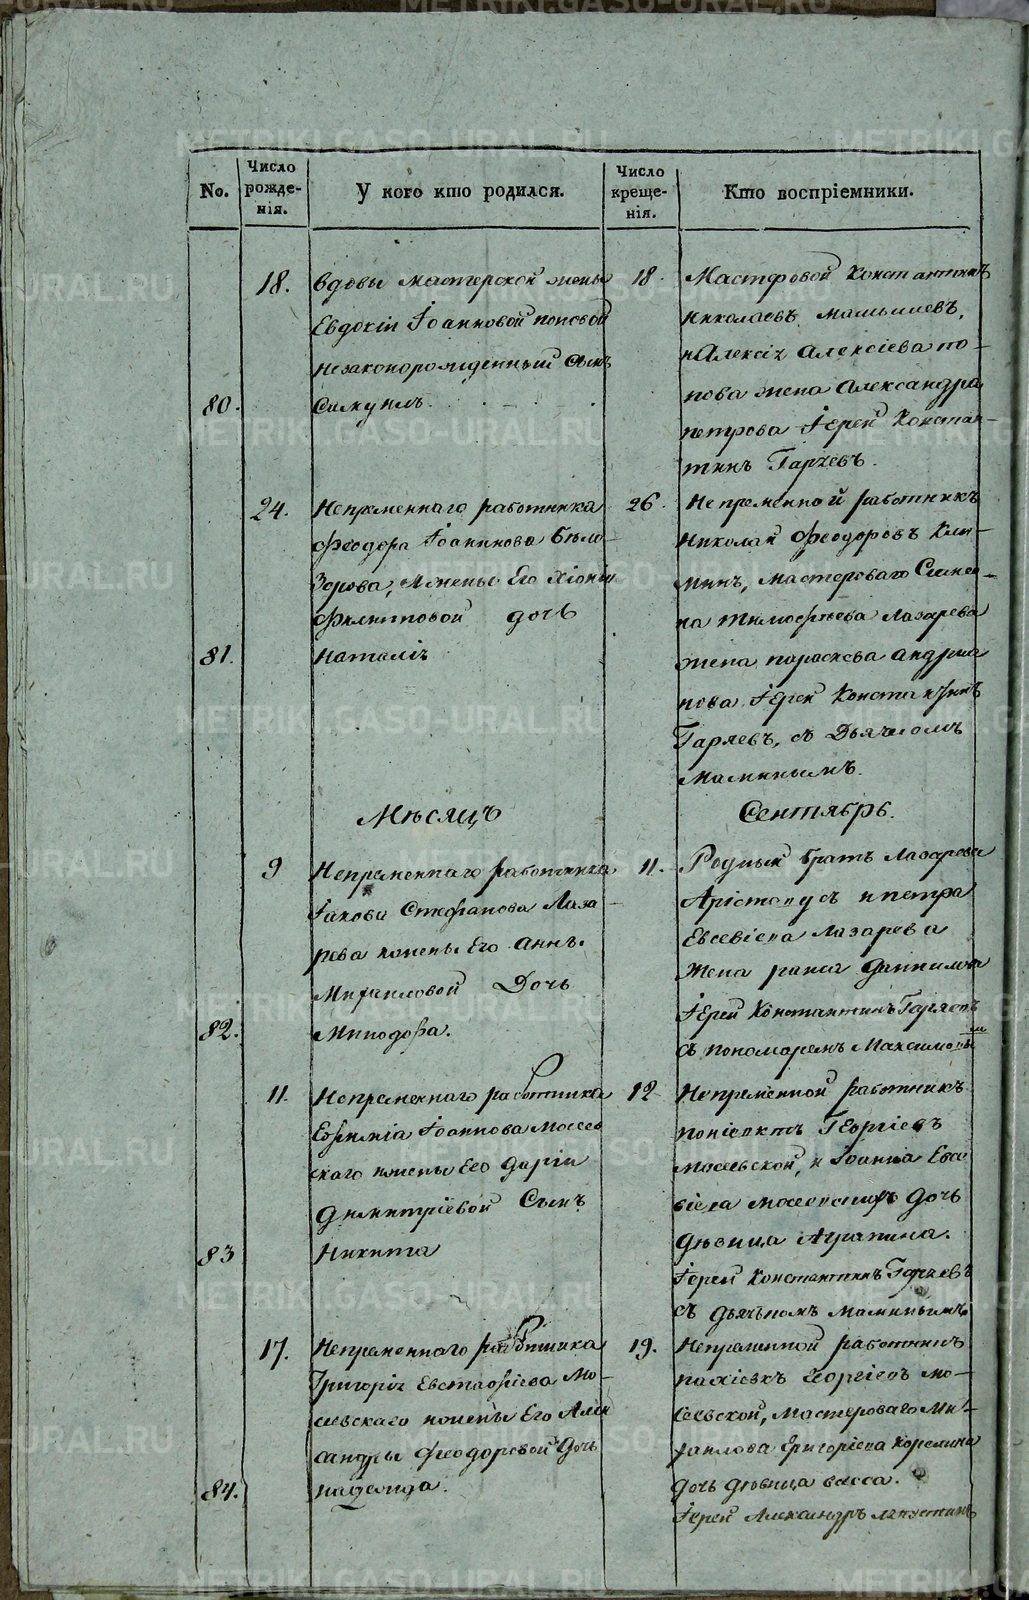 No.
Число рожде-нія.
У кого кто родился.
Число креще-нія.
Кто воспріемники.
18.
Вдовы мастерской жены
Евдокіи Іоанновой поповой
незаконорожденный сынъ
80.
Самуилъ.
18
Мастеровой Константинъ
Николаевъ малышевъ,
и Алексіz Алексіева по-
пова жена Александра
петрова Іерей Констан-
тинъ Гаряевъ.
24.
Непременнаго работника
Феодора Іоаннова Бело-
Зерова, и жены Его Хіоніи
Филипповой дочь
81.
Наталіz
26.
Непременной работникъ
Николай Феодоровъ Кли-
минъ, мастероваго Симео-
на Тимофѣева Лазарева
жена параскева андриа
нова Іерей Константинъ
Гаряевъ, съ Дьячкомъ
Маминымъ.
Мѣсяцъ
Сентябрь.
9
Непременнаго работника
Іакова Стефанова Лаза-
рева и жены Его Анны
Михаиловой Дочь
82.
Минодора.
11.
Родный братъ Лазарева
Арістопусъ и петра
Евсевіева Лазарева
Жена раиса Даниилова
Іерей Константинъ Гаряевъ
съ пономаремъ Максимовы
м
11.
Непременнаго работника
Ефиміа Іоаннова Мосев
скаго и жены Его Даріи
Димитріевой Сынъ
83
Никита
12
Непременной работникъ
Георгіевъ
мосевской, и Іоанна Евсе
віева мосевскаго дочь
девица Агрипина.
Іерей Константинъ Гаряевъ
съ дьячкомъ Маминымъ
17.
Непременнаго работника
Григоріz Евстафіева Мо-
сиевскаго и жены Его Алек
сандры Феодоровой Дочь
84.
надежда.
19.
Непременной работникъ
Георгіевъ мо-
сеевской, мастероваго Ми-
хаилова Григоріева Корелина
дочь девица васса.
Іерей Александръ Лапустинъ
METRIKI.GASO-URAL.RU